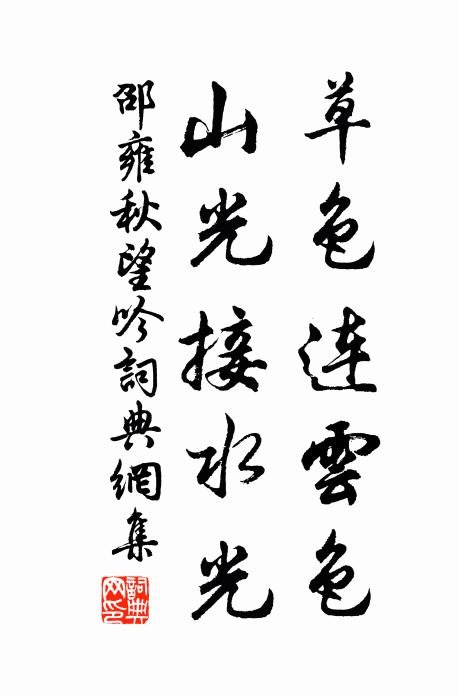 草色連雲色
山光接水光
邵雍秋望吟詞典網集
詞典網印